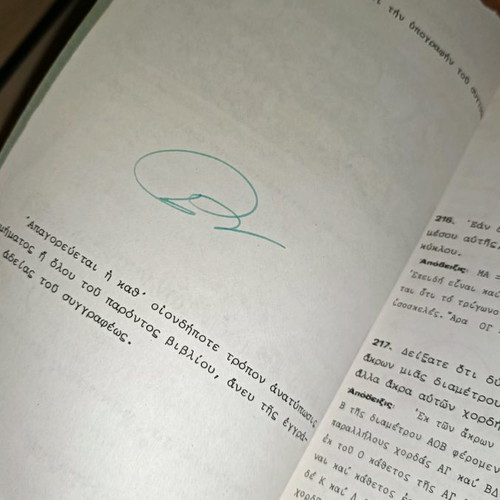 τήν ὑπογραφήν τοῦ
Ἀπαγορεύεται ἡ καθ' οἱονδήποτε τρόπον ἀνατύπωσις
μήματος ἤ ὅλου τοῦ παρόντος βιβλίου, ἄνευ τῆς ἐγγρά-
ἀδείας τοῦ συγγραφέως.
216. Ἐάν
μέσου αὐτῆς,
κύκλου.
Ἀπόδειξις: ΜΑ =
Ἐπειδή εἶναι καί
ται ὅτι τό τρίγωνο
ἰσοσκελές. Ἄρα ΟΓ
217. Δείξατε ὅτι δύ
ἄκρων μιᾶς διαμέτρου
ἄλλα ἄκρα αὐτῶν χορδή
Ἀπόδειξις: Ἐκ τῶν ἄκρων
Β τῆς διαμέτρου ΑΟΒ φέρομεν
παραλλήλους χορδάς ΑΓ καί ΒΔ
ἐκ τοῦ Ο κάθετος τῆς ΑΓ
ναι καί κάθετος
δέ Κ καί Λ